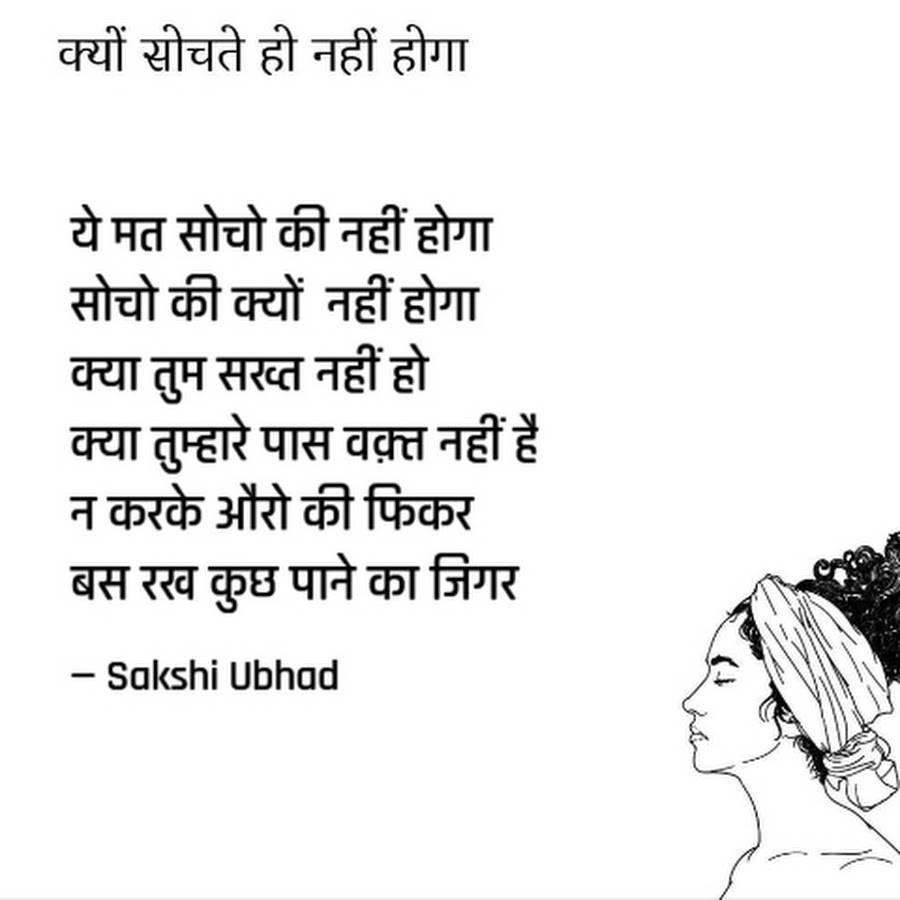 क्यों सोचते हो नहीं होगा
ये मत सोचो की नहीं होगा
सोचो की क्यों नहीं होगा
क्या तुम सख्त नहीं हो
क्या तुम्हारे पास वक़्त नहीं है
न करके औरो की फिकर
बस रख कुछ पाने का जिगर
– Sakshi Ubhad